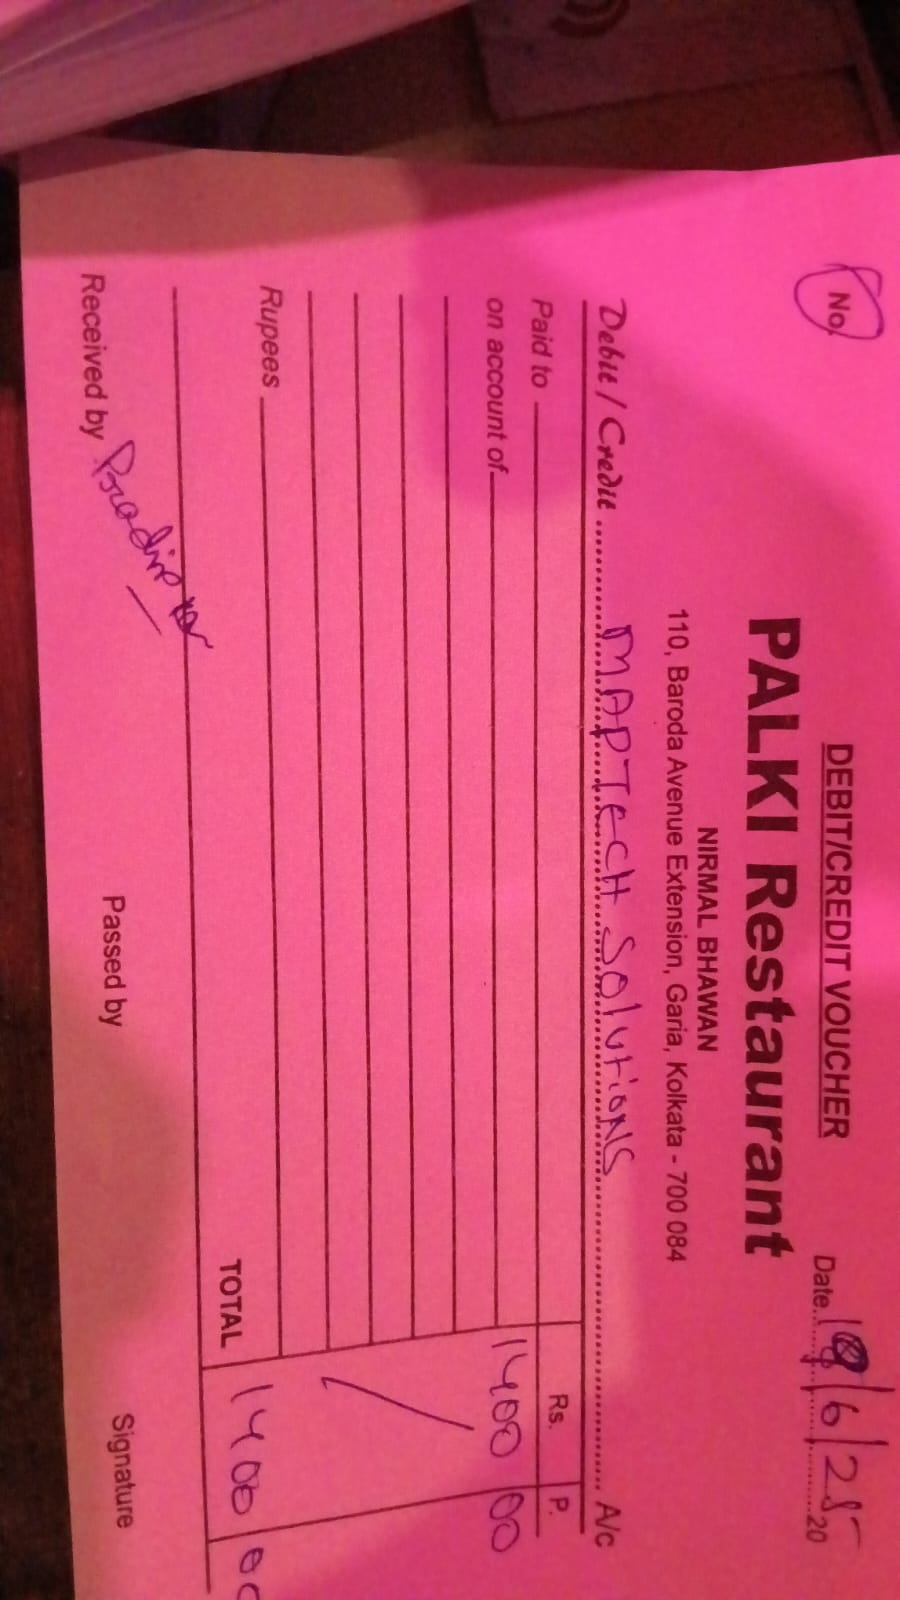 DEBIT/CREDIT VOUCHER
No.
Date 6/25 20
PALKI Restaurant
NIRMAL BHAWAN
110, Baroda Avenue Extension, Garia, Kolkata - 700 084
Debit / Credit MAPTECH SOLUTIONS A/c
Paid to Rs. P.
on account of 1400 00
Rupees
TOTAL 1400 00
Received by
Passed by
Signature